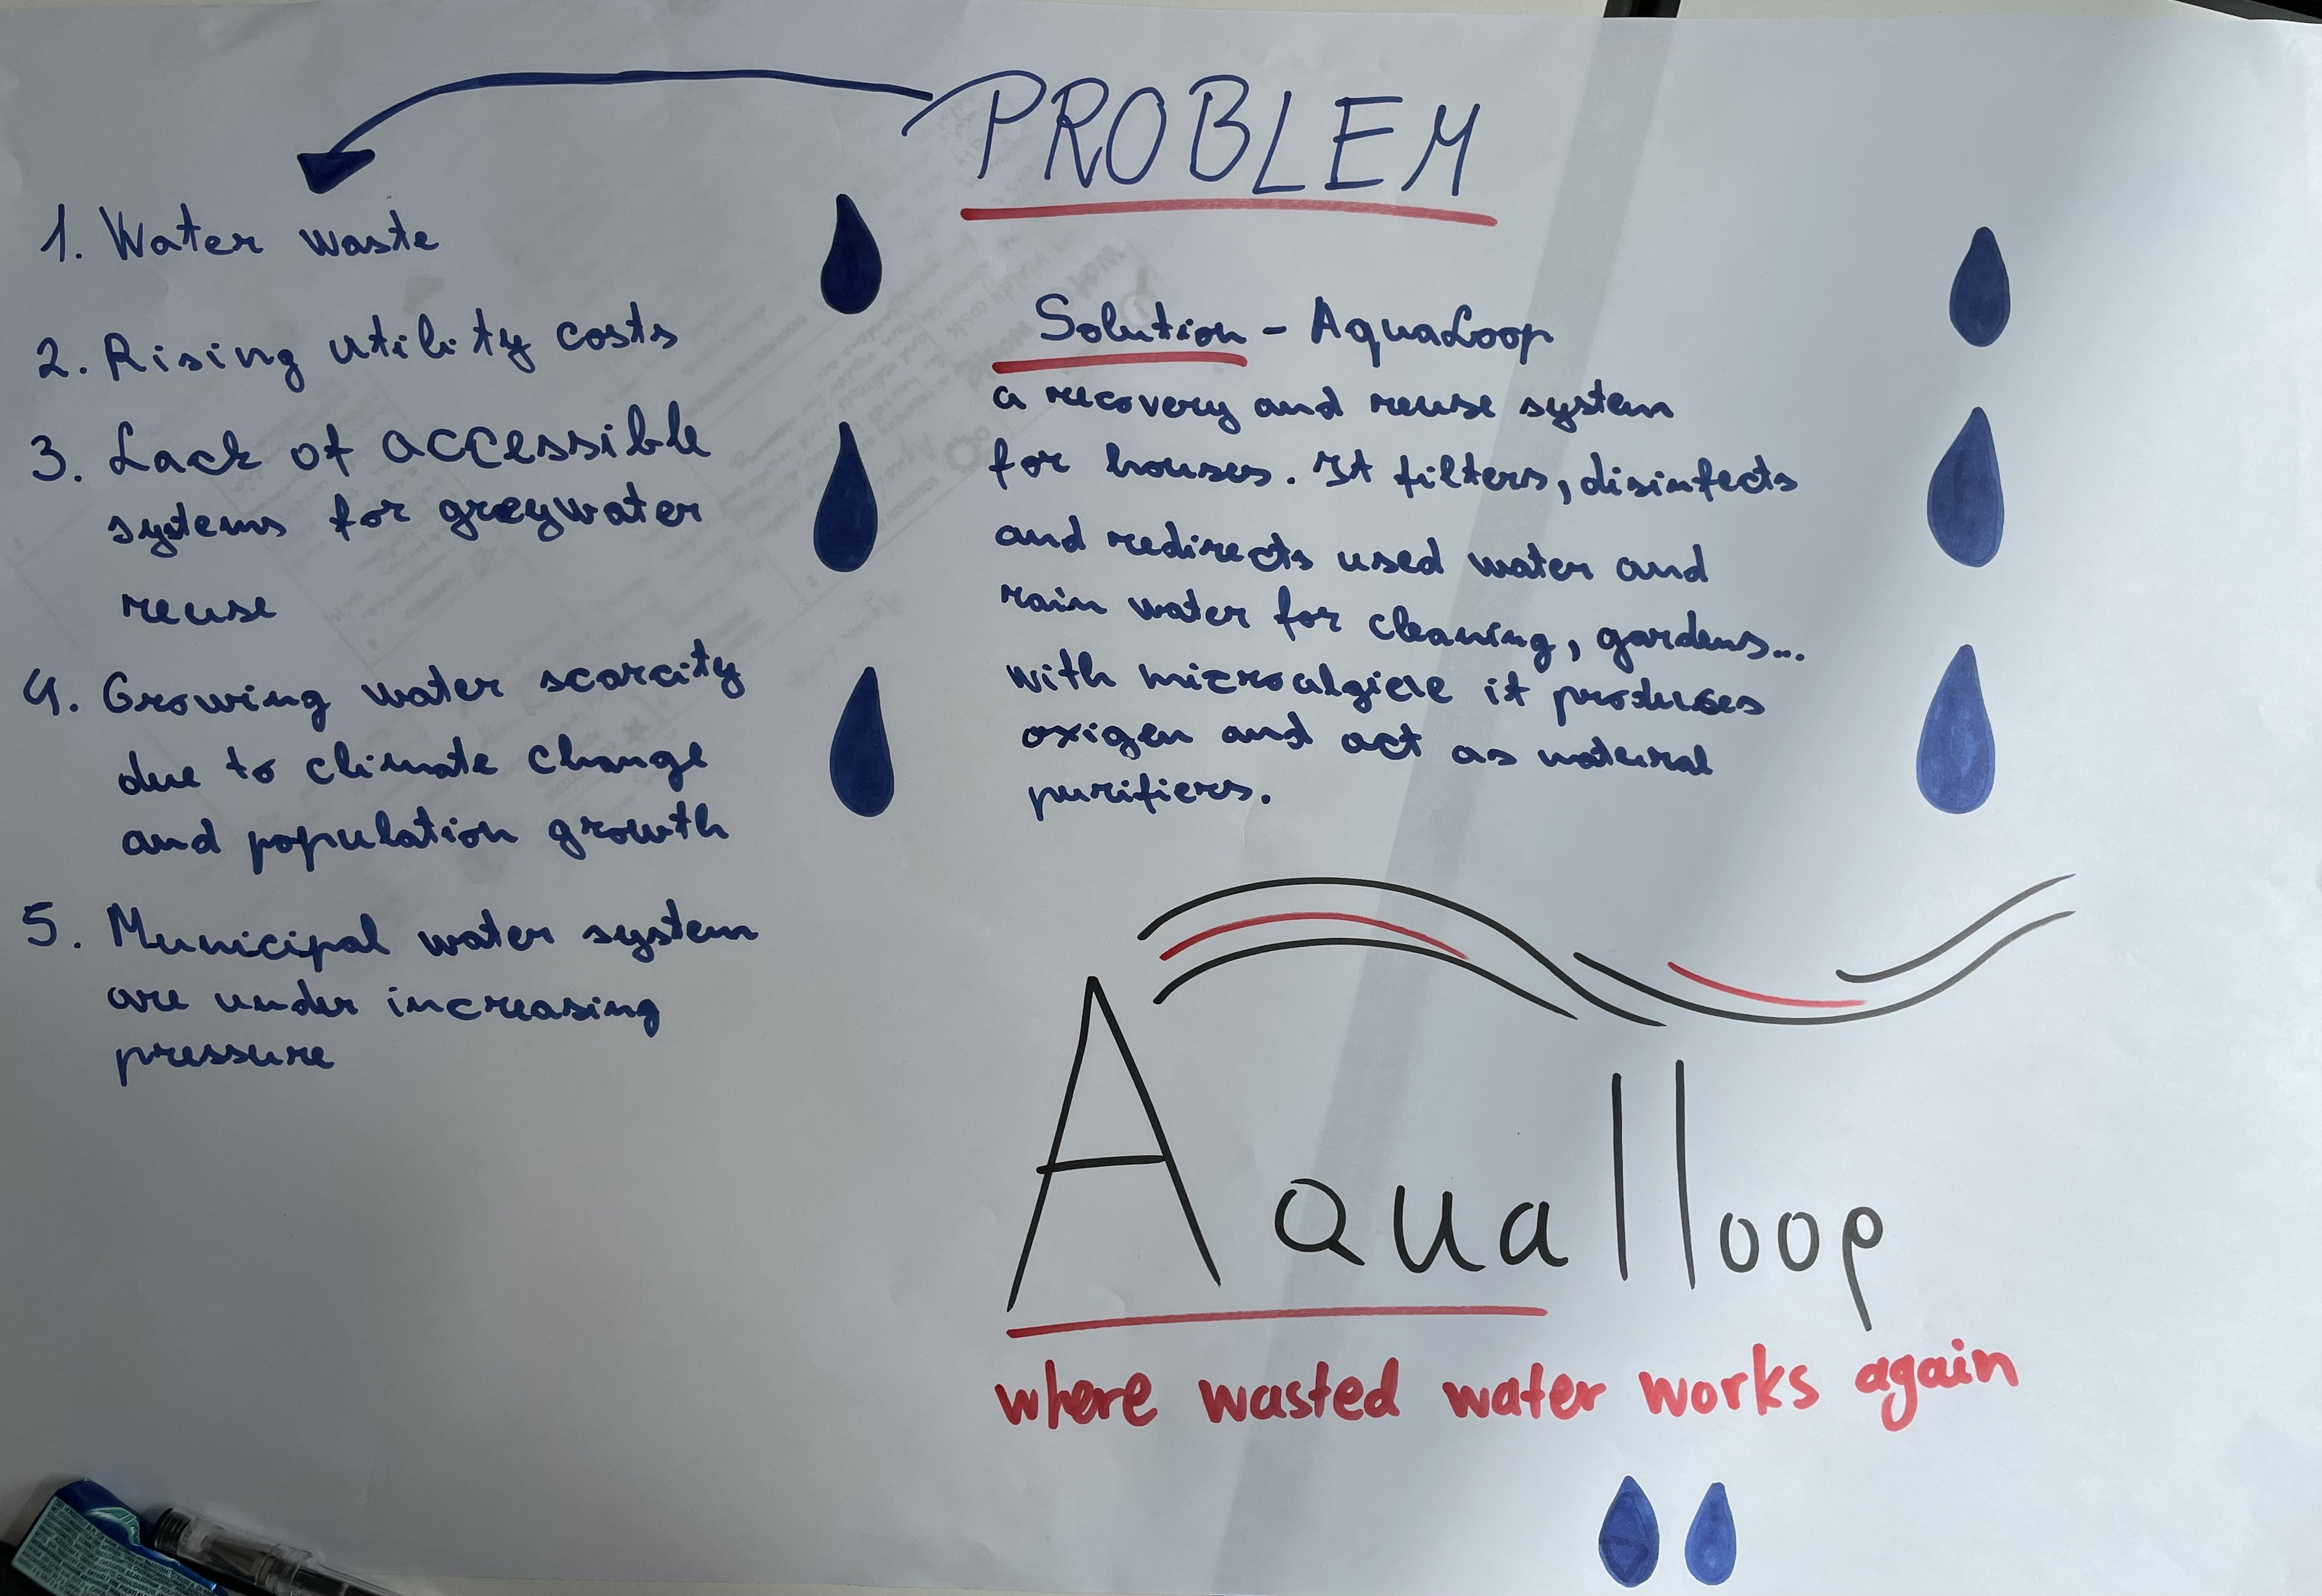 PROBLEM
1. Water waste
2. Rising utility costs
3. Lack of accessible
systems for greywater
reuse
4. Growing water scarcity
due to climate change
and population growth
5. Municipal water system
are under increasing
pressure
Solution - AquaLoop
a recovery and reuse system
for houses. It filters, disinfects
and redirects used water and
rain water for cleaning, gardens...
with microalgieae it produses
oxigen and act as natural
purifiers.
Aqualloop
where wasted water works again